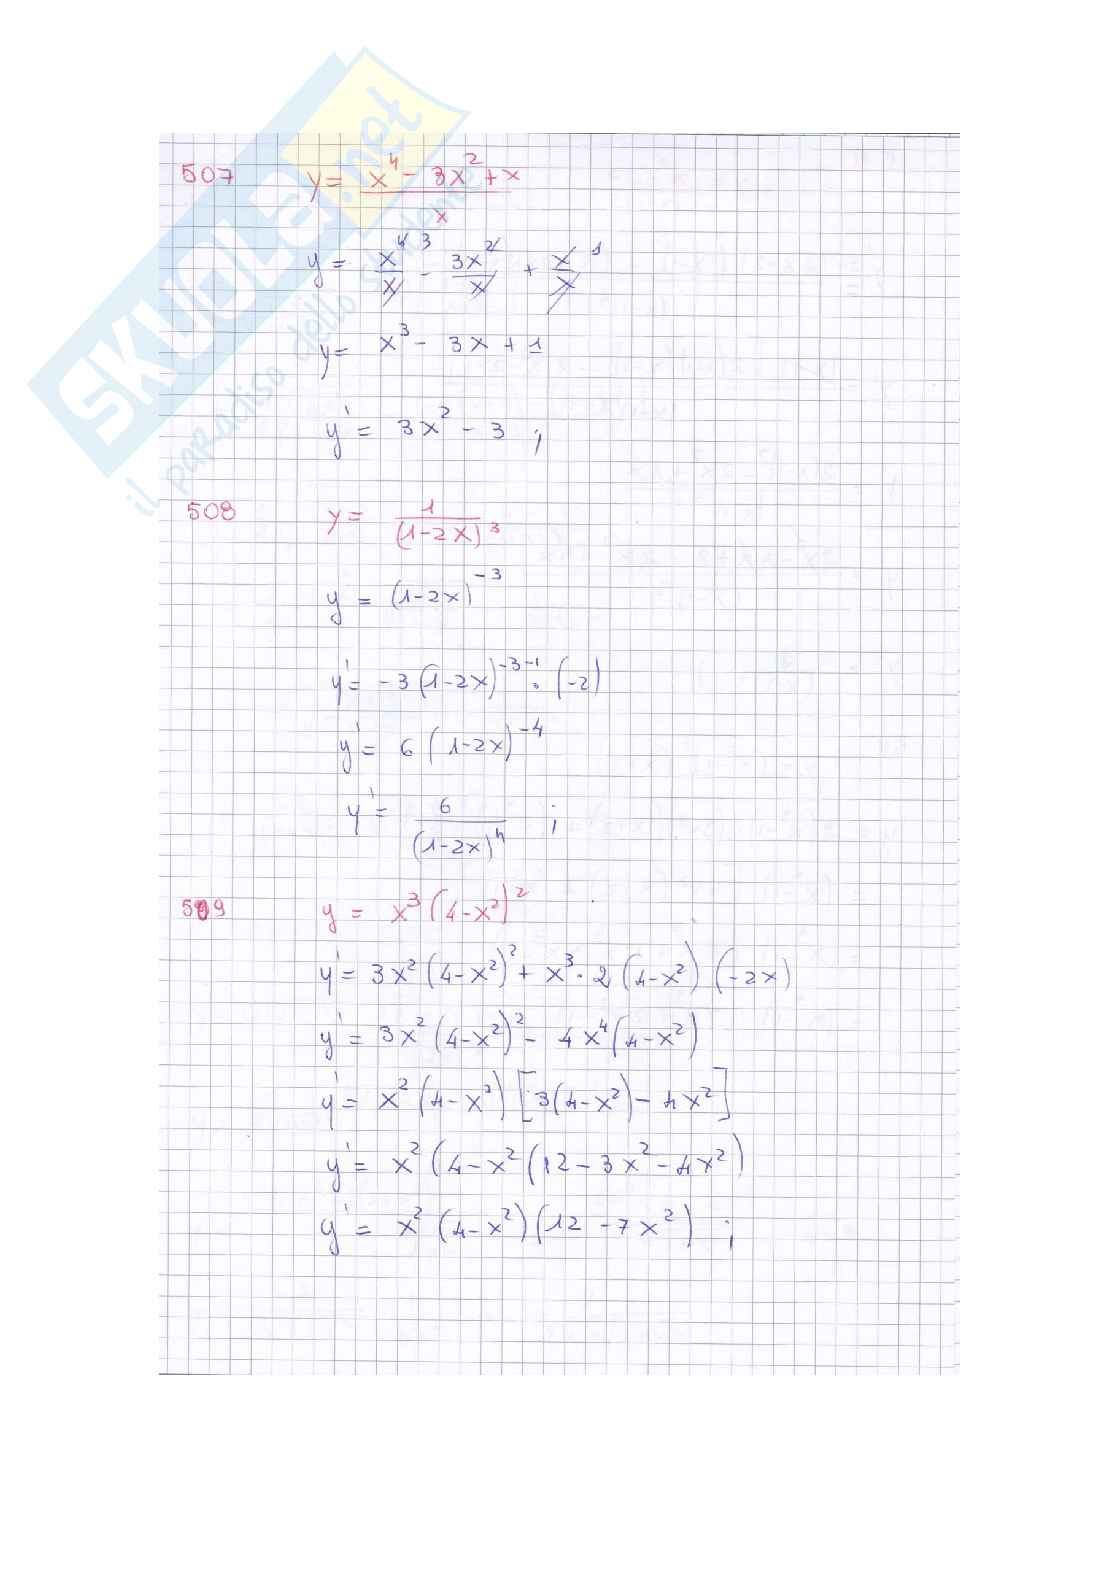 SKUOLA.net
il paradiso dello studente
507 y = (x^4 - 3x^2 + x)/x
y = x^4/x^3 - 3x^2/x + x/x 1
y = x^3 - 3x + 1
y' = 3x^2 - 3 ;
508 y = 1/(1-2x)^3
y = (1-2x)^-3
y' = -3(1-2x)^-3-1 · (-2)
y' = 6(1-2x)^-4
y' = 6/(1-2x)^4 ;
509 y = x^3(4-x^2)^2
y' = 3x^2(4-x^2)^2 + x^3·2(4-x^2)(-2x)
y' = 3x^2(4-x^2)^2 - 4x^4(4-x^2)
y' = x^2(4-x^2)[3(4-x^2)-4x^2]
y' = x^2(4-x^2(12-3x^2-4x^2)
y' = x^2(4-x^2)(12-7x^2) ;